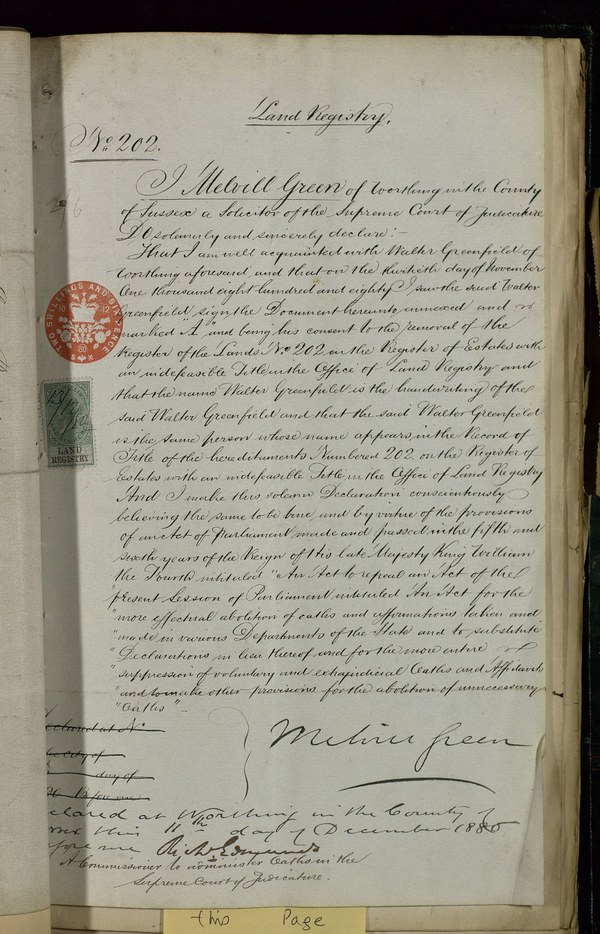 Land Registry.
No. 202.
I Melvill Green of Worthing in the County
of Sussex a Solicitor of the Supreme Court of Judicature
Do solemnly and sincerely declare:-
That I am well acquainted with Walter Greenfield of
Worthing aforesaid, and that on the thirtieth day of November
One thousand eight hundred and eighty I saw the said Walter
Greenfield sign the Document hereunto annexed and
marked "A" and being his consent to the removal of the
Register of the Lands No. 202 on the Register of Estates with
an indefeasible Title in the Office of Land Registry and
that the name Walter Greenfield is the handwriting of the
said Walter Greenfield and that the said Walter Greenfield
is the same person whose name appears in the Record of
Title of the hereditaments Numbered 202 on the Register of
Estates with an indefeasible Title in the Office of Land Registry
And I make this solemn Declaration conscientiously
believing the same to be true and by virtue of the provisions
of an Act of Parliament made and passed in the fifth and
sixth years of the Reign of His late Majesty King William
the Fourth intituled "An Act to repeal an Act of the
"present Session of Parliament intituled An Act for the
"more effectual abolition of oaths and affirmations taken and
"made in various Departments of the State and to substitute
"Declarations in lieu thereof and for the more entire
"suppression of voluntary and extrajudicial Oaths and Affidavits
"and to make other provisions for the abolition of unnecessary
"Oaths"-
TWO SHILLINGS AND SIX PENCE
LAND
REGISTRY
clared at No.
the city of
day of
Before me
Melvill Green
clared at Worthing in the County of
this 11th day of December 1880
fore me Richd. Edmunds
A Commissioner to administer Oaths in the
Supreme Court of Judicature.
this Page